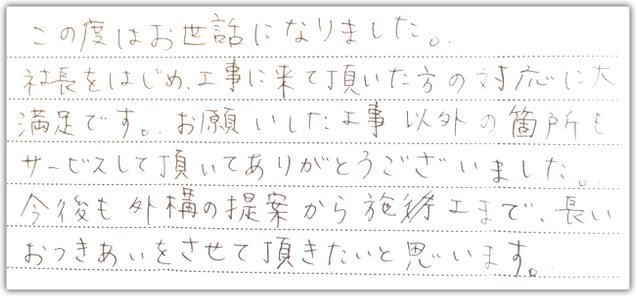 この度はお世話になりました。
社長をはじめ、工事に来て頂いた方の対応に大
満足です。お願いした工事以外の箇所も
サービスして頂いてありがとうございました。
今後も外構の提案から施工まで、長い
おつきあいをさせて頂きたいと思います。